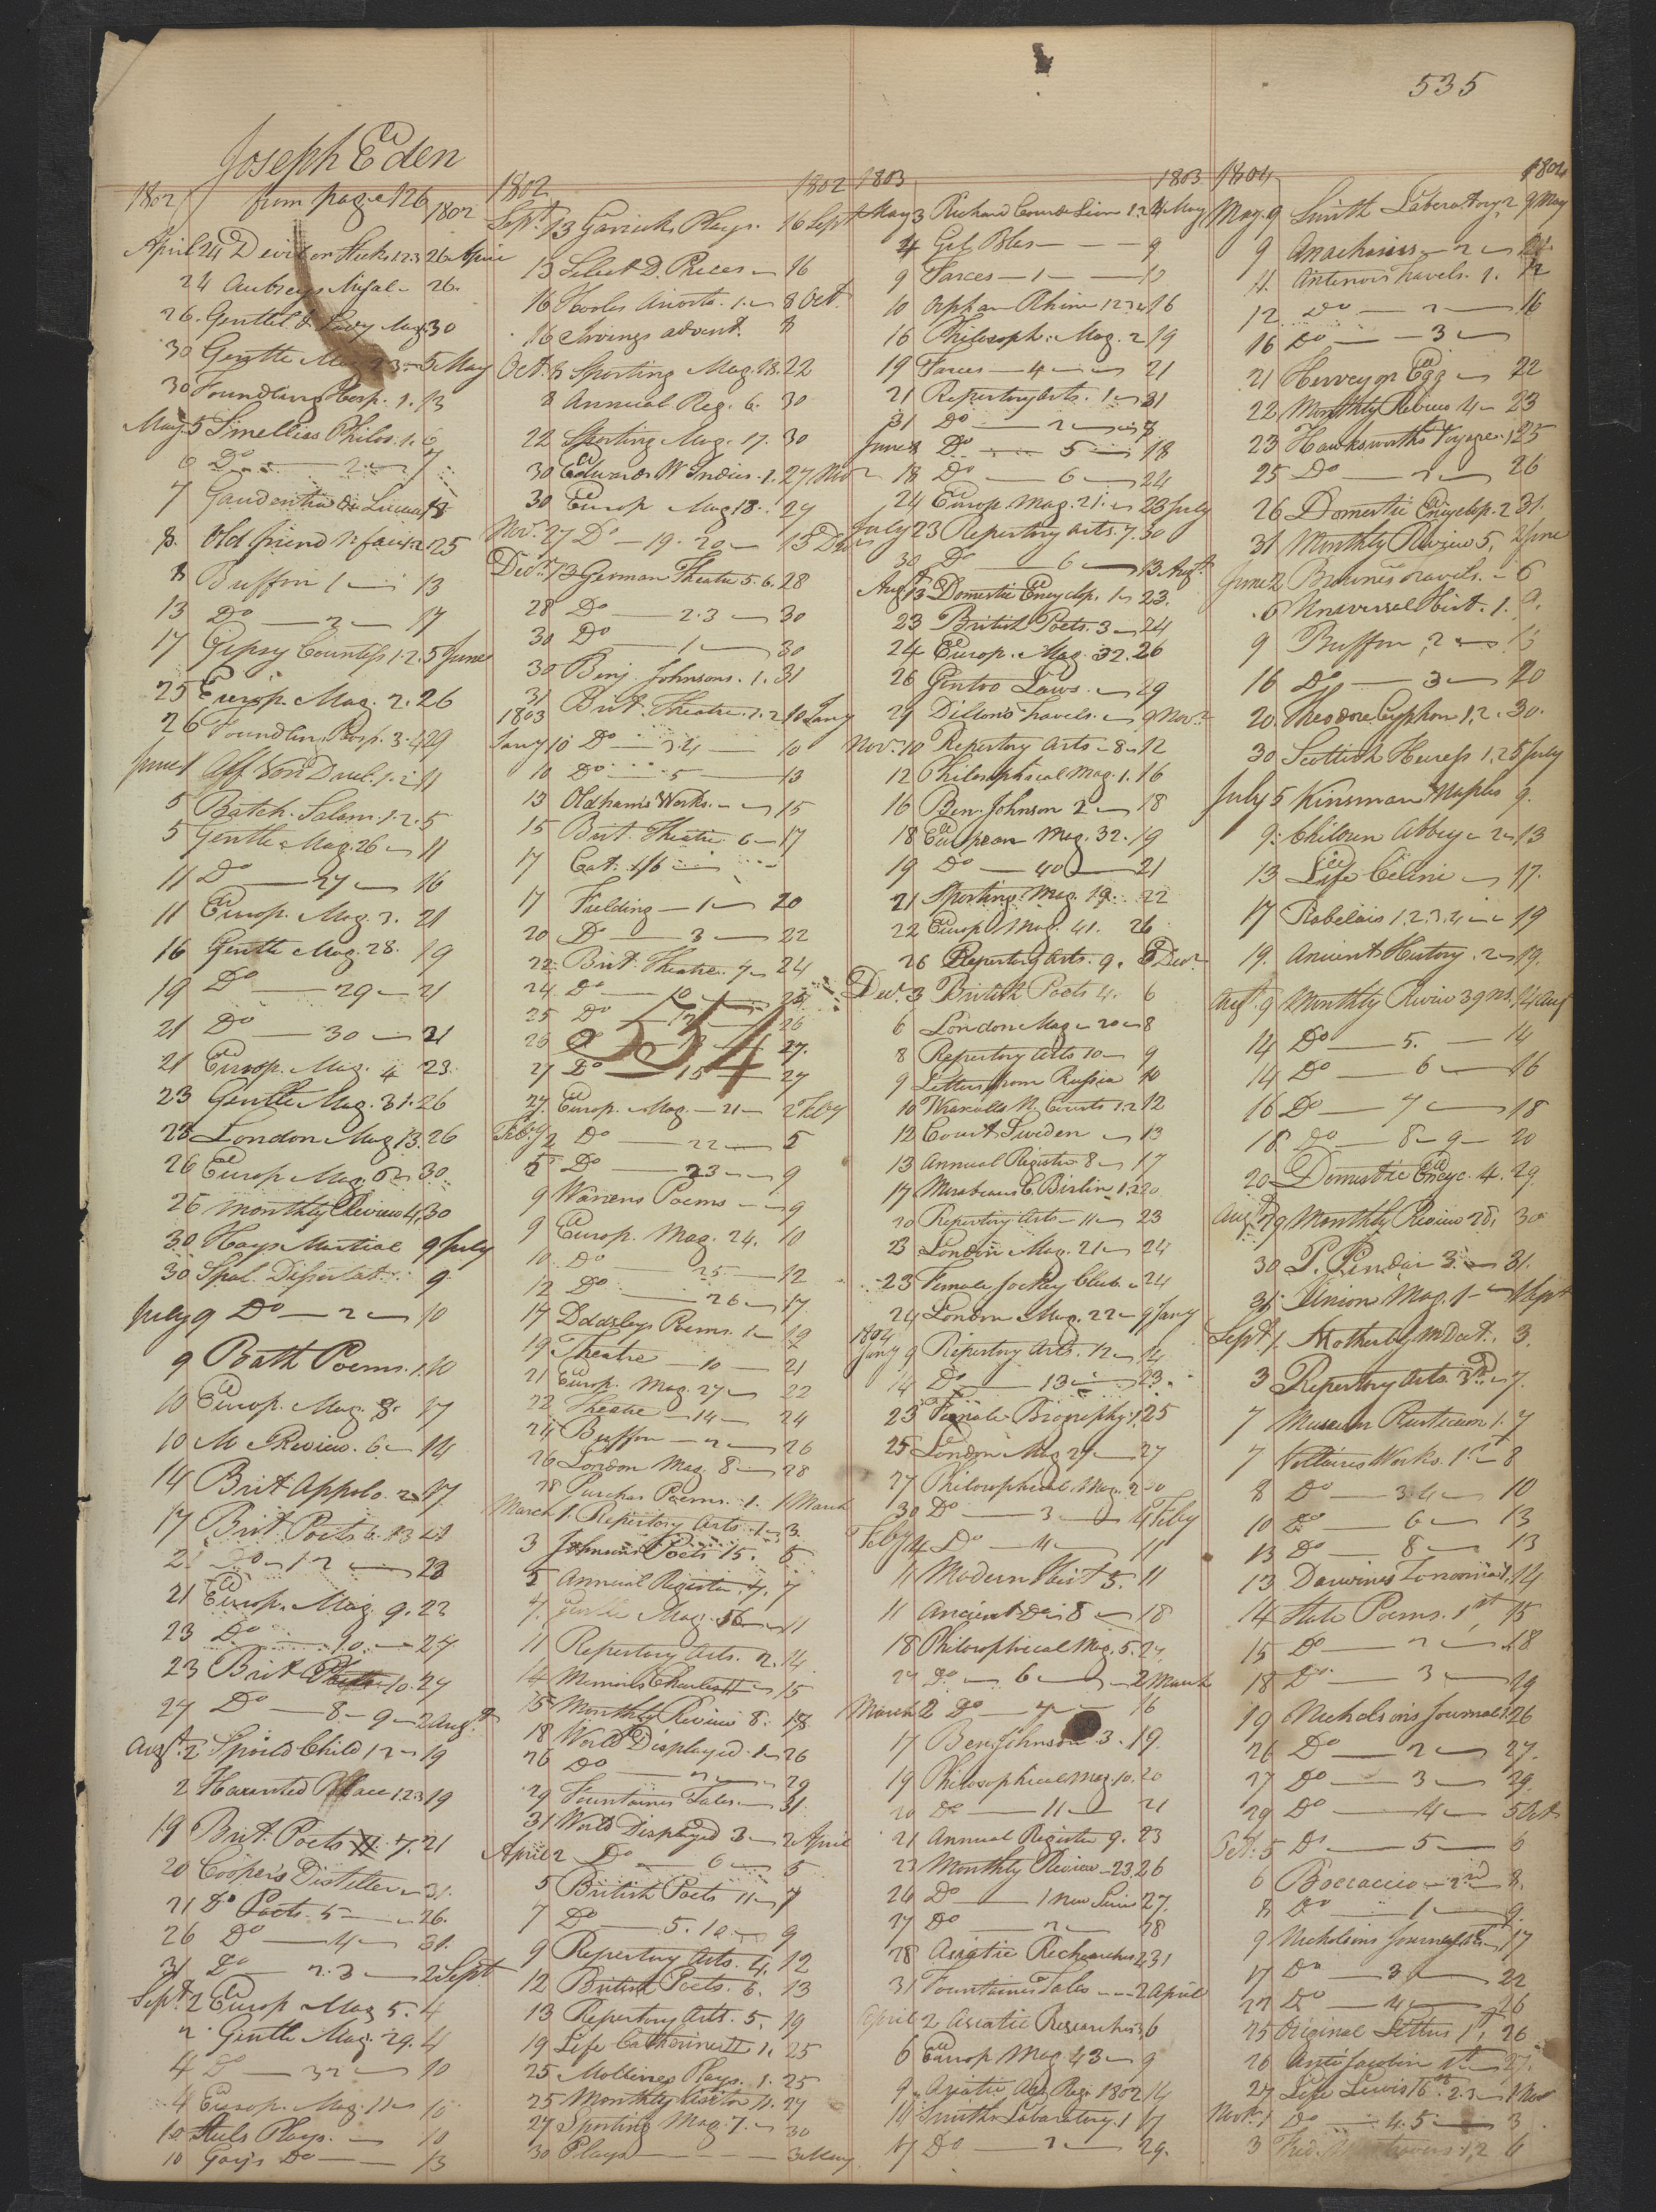 535
Joseph Eden
from page 126
1802 1802
April 24 Devil on Sticks 1.2.3 26 April
24 Aubreys Miscel - 26.
26. Gentlel & Lady Mag. 30
30 Gentle Mag 23 - 5 May
30 Foundling Hosp. 1. 13
May 5 Smellies Philos. 1. 6
6 Do - 2 - 7
7 Gaudentia di Lucca 13
8. Old friend N. face 1.2 25
8 Buffon 1 - 13
13 Do - 2 - 17
17 Gipsy Countess 1.2. 5 June
25 Europ. Mag. 2. 26
26 Foundling Hosp. 3.4 29
June 1 1.2 11
5 Batch. Salam. 1.2. 5
5 Gentle Mag. 26 - 11
11 Do - 27 - 16
11 Europ. Mag. 3. 21
16 Gentle Mag. 28. 19
19 Do - 29 - 21
21 Do - 30 - 21
21 Europ. Mag. 4 23
23 Gentle Mag. 31. 26
23 London Mag 13. 26
26 Europ Mag. 6 - 30
26 Monthly Review 4, 30
30 Hays Martial 9 July
30 Spal. Dissertat. 9
July 9 Do - 2 - 10
9 Bath Poems. 1. 10
10 Europ. Mag. 8. 17
10 M Review. 6 - 14
14 Brit Appolo. 2 - 17
17 Brit. Poets 6. 13 21
21 Do - 12 - 23
21 Europ. Mag. 9. 23
23 Do - 10 - 27
23 Brit 10. 27
27 Do - 8 - 9 - 2 Augt
Augt. 2 Spoild Child 1 2 - 19
2 Haunted Place 1.2.3 19
19 Brit. Poets 7. 21
20 Coopers Distiller - 31.
21 Do Poets. 5 - 26.
26 Do - 4 - 31.
31 Do - 2.3 - 2 Sept
Sept. 2 Europ Mag 5. 4
2. Gentle Mag. 29. 4
4 Do - 32 - 10
4 Europ. Mag. 11 - 10
10 Plays. - 10
10 Gays Do - 13
1802 1802
Sept. 13 Garricks Plays. 16 Sept
13 Select D. Pieces - 16
16 Hooles Ariosto. 1. - 8 Oct.
16 Irvings advent. 8
Oct. 8 Sporting Mag. 18. 22
8 Annual Reg. 6. 30
22 Sporting Mag. 17. 30
30 Edwards W Indies. 1. 27 Nov
30 Europ Mag 18. 27
Novr. 27 Do - 19. 20 - 13 Decr
Decr. 13 German Theatre 5.6. 28
28 Do - 2.3 - 30
30 Do - 1 - 30
30 Benj. Johnsons. 1. 31
31 Brit. Theatre. 1.2 10 Jany
1803
Jany 10 Do - 3.4 - 10
10 Do - 5 - 13
13 Oldhams Works. - 15
15 Brit. Theatre 6 - 17
17 Cat. 1/6
17 Fielding - 1 - 20
20 Do - 3 - 22
22 Brit. Theatre. 7 - 24
24 Do - 10 - 25
25 Do - 12 - 26
26 - 13 - 27.
27 Do - 15 - 27
534
27. Europ. Mag. - 21 - 2 Feby
Feby 2 Do - 22 - 5
5 Do - 23 - 9
9 Warrens Poems - 9
9 Europ. Mag. 24. 10
10. Do - 25 - 12
12 Do - 26 - 17
17 Dodsleys Poems. 1 - 19
19 Theatre - 10 - 21
21 Europ. Mag. 27 - 22
22 Theatre - 14 - 24
24 Buffon - 2 - 26
26 London Mag 8 - 28
28 Purchas Poems. 1. 1 March
March 1. Repertory Arts. 1 - 3.
3 Johnsons Poets 15. 5
5 Annual Register. 7. 7
7. Gentle Mag. 56 - 11
11 Repertory Arts. 2. 14
14 Memoirs Charles II - 15
15 Monthly Review 8. 18
18 World Displayed. 1 - 26
26 Do - 2 - 29
29 Fountaines Tales. - 31
31 World Displayed 3 - 2 April
April 2 Do - 6 - 5
5 British Poets 11 - 7
7 Do - 5. 10 - 9
9 Repertory Arts. 4. 12
12 British Poets. 6. 13
13 Repertory Arts. 5. 19
19 Life Catherine II 1. 25
25 Molieres Plays. 1. 25
25 Monthly Visitor 11. 27
27 Sporting Mag. 7. - 30
30 Plays - 3 May
1803 1803
May 3 Richard Coeur de Lion 1.2 4 May
4 Gil Blas - 9
9 Farces - 1 - 10
10 Orphan Rhine 1 2 3 4 16
16 Philosoph. Mag. 2 19
19 Farces - 4 - 21
21 Repertory Arts. 1 - 31
31 Do - 2 - 7
June 8 Do - 5 - 18
18 Do - 6 - 24
24 Europ. Mag. 21. - 23 July
July 23 Repertory Arts. 7. 30
30 Do - 6 - 13 Augt.
Augt 13 Domestic Encyclop. 1 - 23.
23 British Poets. 3 - 24
24 Europ. Mag. 32. 26
26 Gentoo Laws. - 29
29 Dillons Travels. - 9 Novr
Novr. 10 Repertory Arts - 8 - 12
12 Philosophical Mag. 1. 16
16 Ben. Johnson 2 - 18
18 European Mag. 32. 19
19 Do - 40 - 21
21 Sporting Mag. 19. 22
22 Europ Mag. 41. 26
26 Repertory Arts. 9. 3 Decr
Decr. 3 British Poets 4. 6
6 London Mag - 20 - 8
8 Repertory Arts 10 - 9
9 Letters from Russia 10
10 Wraxalls N. Courts 1.2 12
12 Court Sweden - 13
13 Annual Register 8 - 17
17 Mirabeaus C. Birlin 1.2 20
20 Repertory Arts - 11 - 23
23 London Mag. 21 - 24
23 Female Jockey Club - 24
24 London Mag. 22 - 9 Jany
1804
Jany 9 Repertory Arts. 12 - 14
14 Do - 13 - 23.
23 Female Biography. 1. 25
25 London Mag 21 - 27
27 Philosophical Mag. 2 30
30 Do - 3 - 4 Feby
Feby 4 Do - 4 - 11
11 Modern Hist 5. 11
11 Ancient Do 8 - 18
18 Philosophical Mag. 5. 27
27 Do - 6 - 2 March
March 2 Do - 7 - 16
17 Ben Johnson 3. 19.
19 Philosophical Mag. 10. 20
20 Do - 11 - 21
21 Annual Register 9. 23
23 Monthly Review - 23. 26
26 Do - 1 New Series 27.
27 Do - 2 - 28
28 Asiatic Researches 2 31
31 Fountaines Tales - 2 April
April 2 Asiatic Researches 3 6
6 Europ Mag 43 - 9
9 Asiatic Ann Regr. 1802 14
14 Smiths Laboratory. 1 17
17 Do - 2 - 29.
1804 1804
May 9 Smith Laboratory 2 9 May
9 Anacharsis - 2 - 11
11 Antenors Travels. 1. 12
12 Do - 2 - 16
16 Do - 3 -
21 Hervey on Egg - 22
22 Monthly Review 4 - 23
23 Hawksworths Voyage. 1 25
25 Do - 2 - 26
26 Domestic Encyclop. 2 31.
31 Monthly Review 5, 2 June
June 2 Brownes Travels. - 6
6 Unaversal Hist. 1. 9.
9 Buffon 2 - 16
16 Do - 3 - 20
20. Theodore Cyphon 1.2. 30.
30 Scottish Heiress 1.2 5 July
July 5 Kinsman Naples 9.
9. Children Abbey - 2 - 13
13 Life Celini - 17.
17 Rabelais 1.2.3.4 - 19
19. Ancient History. 2 - 19.
Augt. 9 Monthly Review 39 NS. 14 Aug
14 Do - 5. - 14
14 Do - 6 - 16
16 Do - 7 - 18
18 Do - 8 - 9 - 20
20 Domestic Encyc. 4. 29
Augt 29 Monthly Review 28, 30
30 P. Pindar 3. - 31.
31. Union Mag. 1 - 1 Sept
Sept. 1. Motherby M Dict. 3.
3 Repertory Arts. 3d. - 7.
7 Museum Rusticum 1. 7
7 Voltaires Works. 1st - 8
8 Do - 3.4 - 10
10 Do - 6 - 13
13 Do - 8 - 13
13 Darwins Zonomia 1. 14
14 State Poems. 1st, 15
15 Do - 2 - 18
18 Do. - 3 - 19
19 Nicholsons Journal 1. 26
26 Do - 2 - 27.
27 Do - 3 - 29.
29 Do - 4 - 5 Oct
Oct. 5 Do - 5 - 6
6 Boccaccio - 2nd - 8.
8 Do - 1 - 9.
9 Nicholsons Journal 17
17 Do - 3 - 22
22 Do - 4 - 26
25 Original Letters 1st, 26
26 Anti Jacobin 1st - 27.
27 Life Lewis 16th. 2.3 - 1 Nov
Novr. 1 Do - 4.5 - 3
3 1.2 6